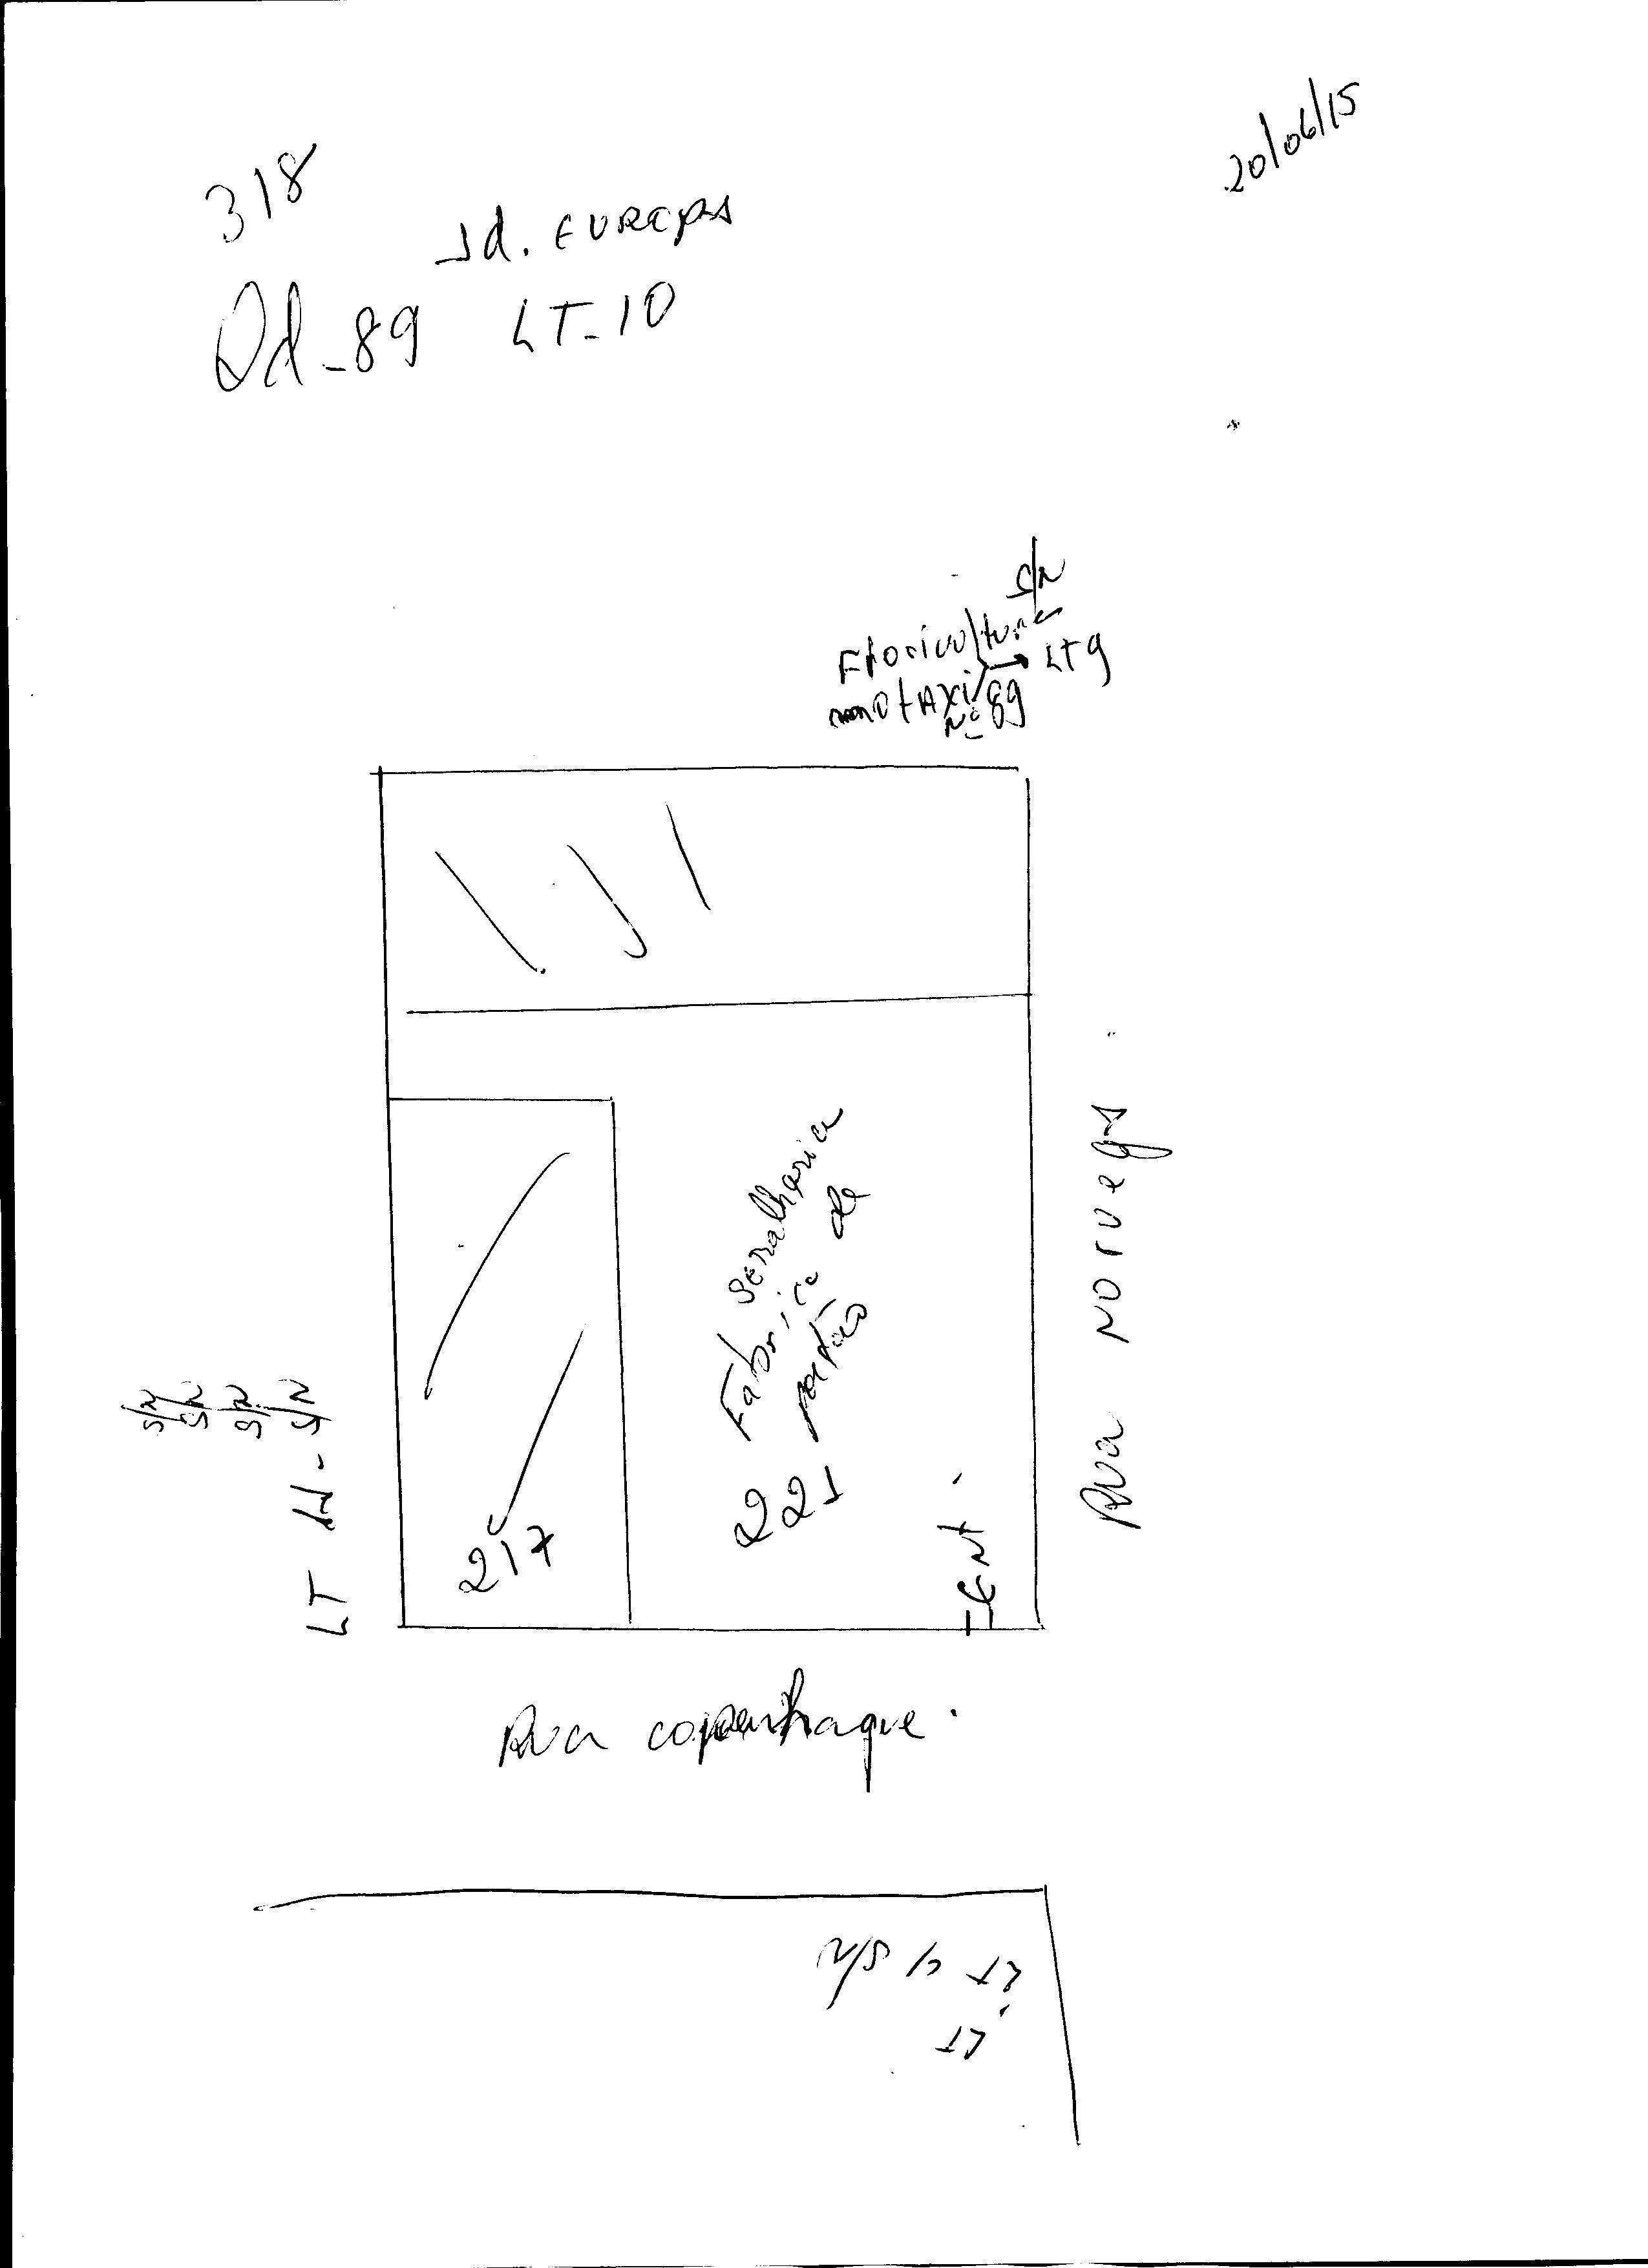 20/06/15
318
Jd. EUROPA
Qd-89 LT-10
S/N
Floricultura
→ LT9
mototAxi
Nº 89
serralheria
Fabrica de
portão
221
217
ENT.
Rua NORUEGA.
LT 11 - S/N
S/N
S/N
S/N
Rua copenhague.
LT 4 S/N
LT